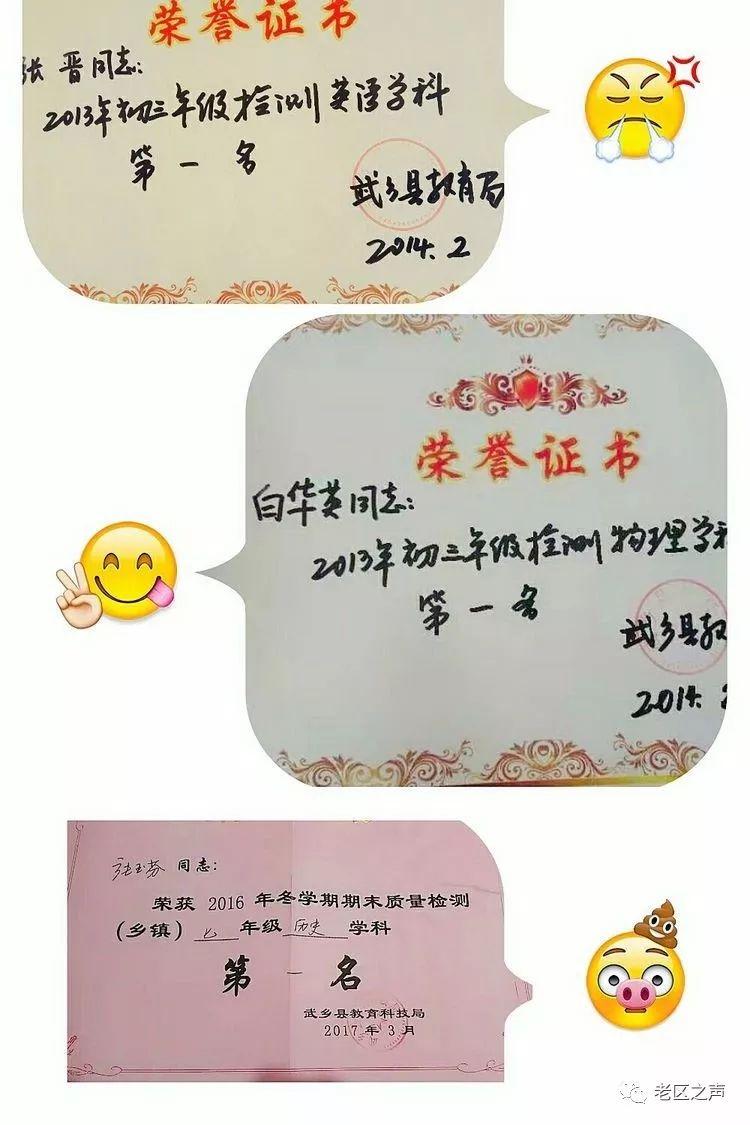 荣誉证书
张晋同志:
2013年初三年级检测英语学科
第一名
武乡县教育局
2014.2
荣誉证书
白华英同志:
2013年初三年级检测物理学科
第一名
武乡县教
2014.2
张玉芬 同志:
荣获 2016 年冬学期期末质量检测
(乡镇) 七 年级 历史 学科
第一名
武乡县教育科技局
2017 年 3 月
老区之声